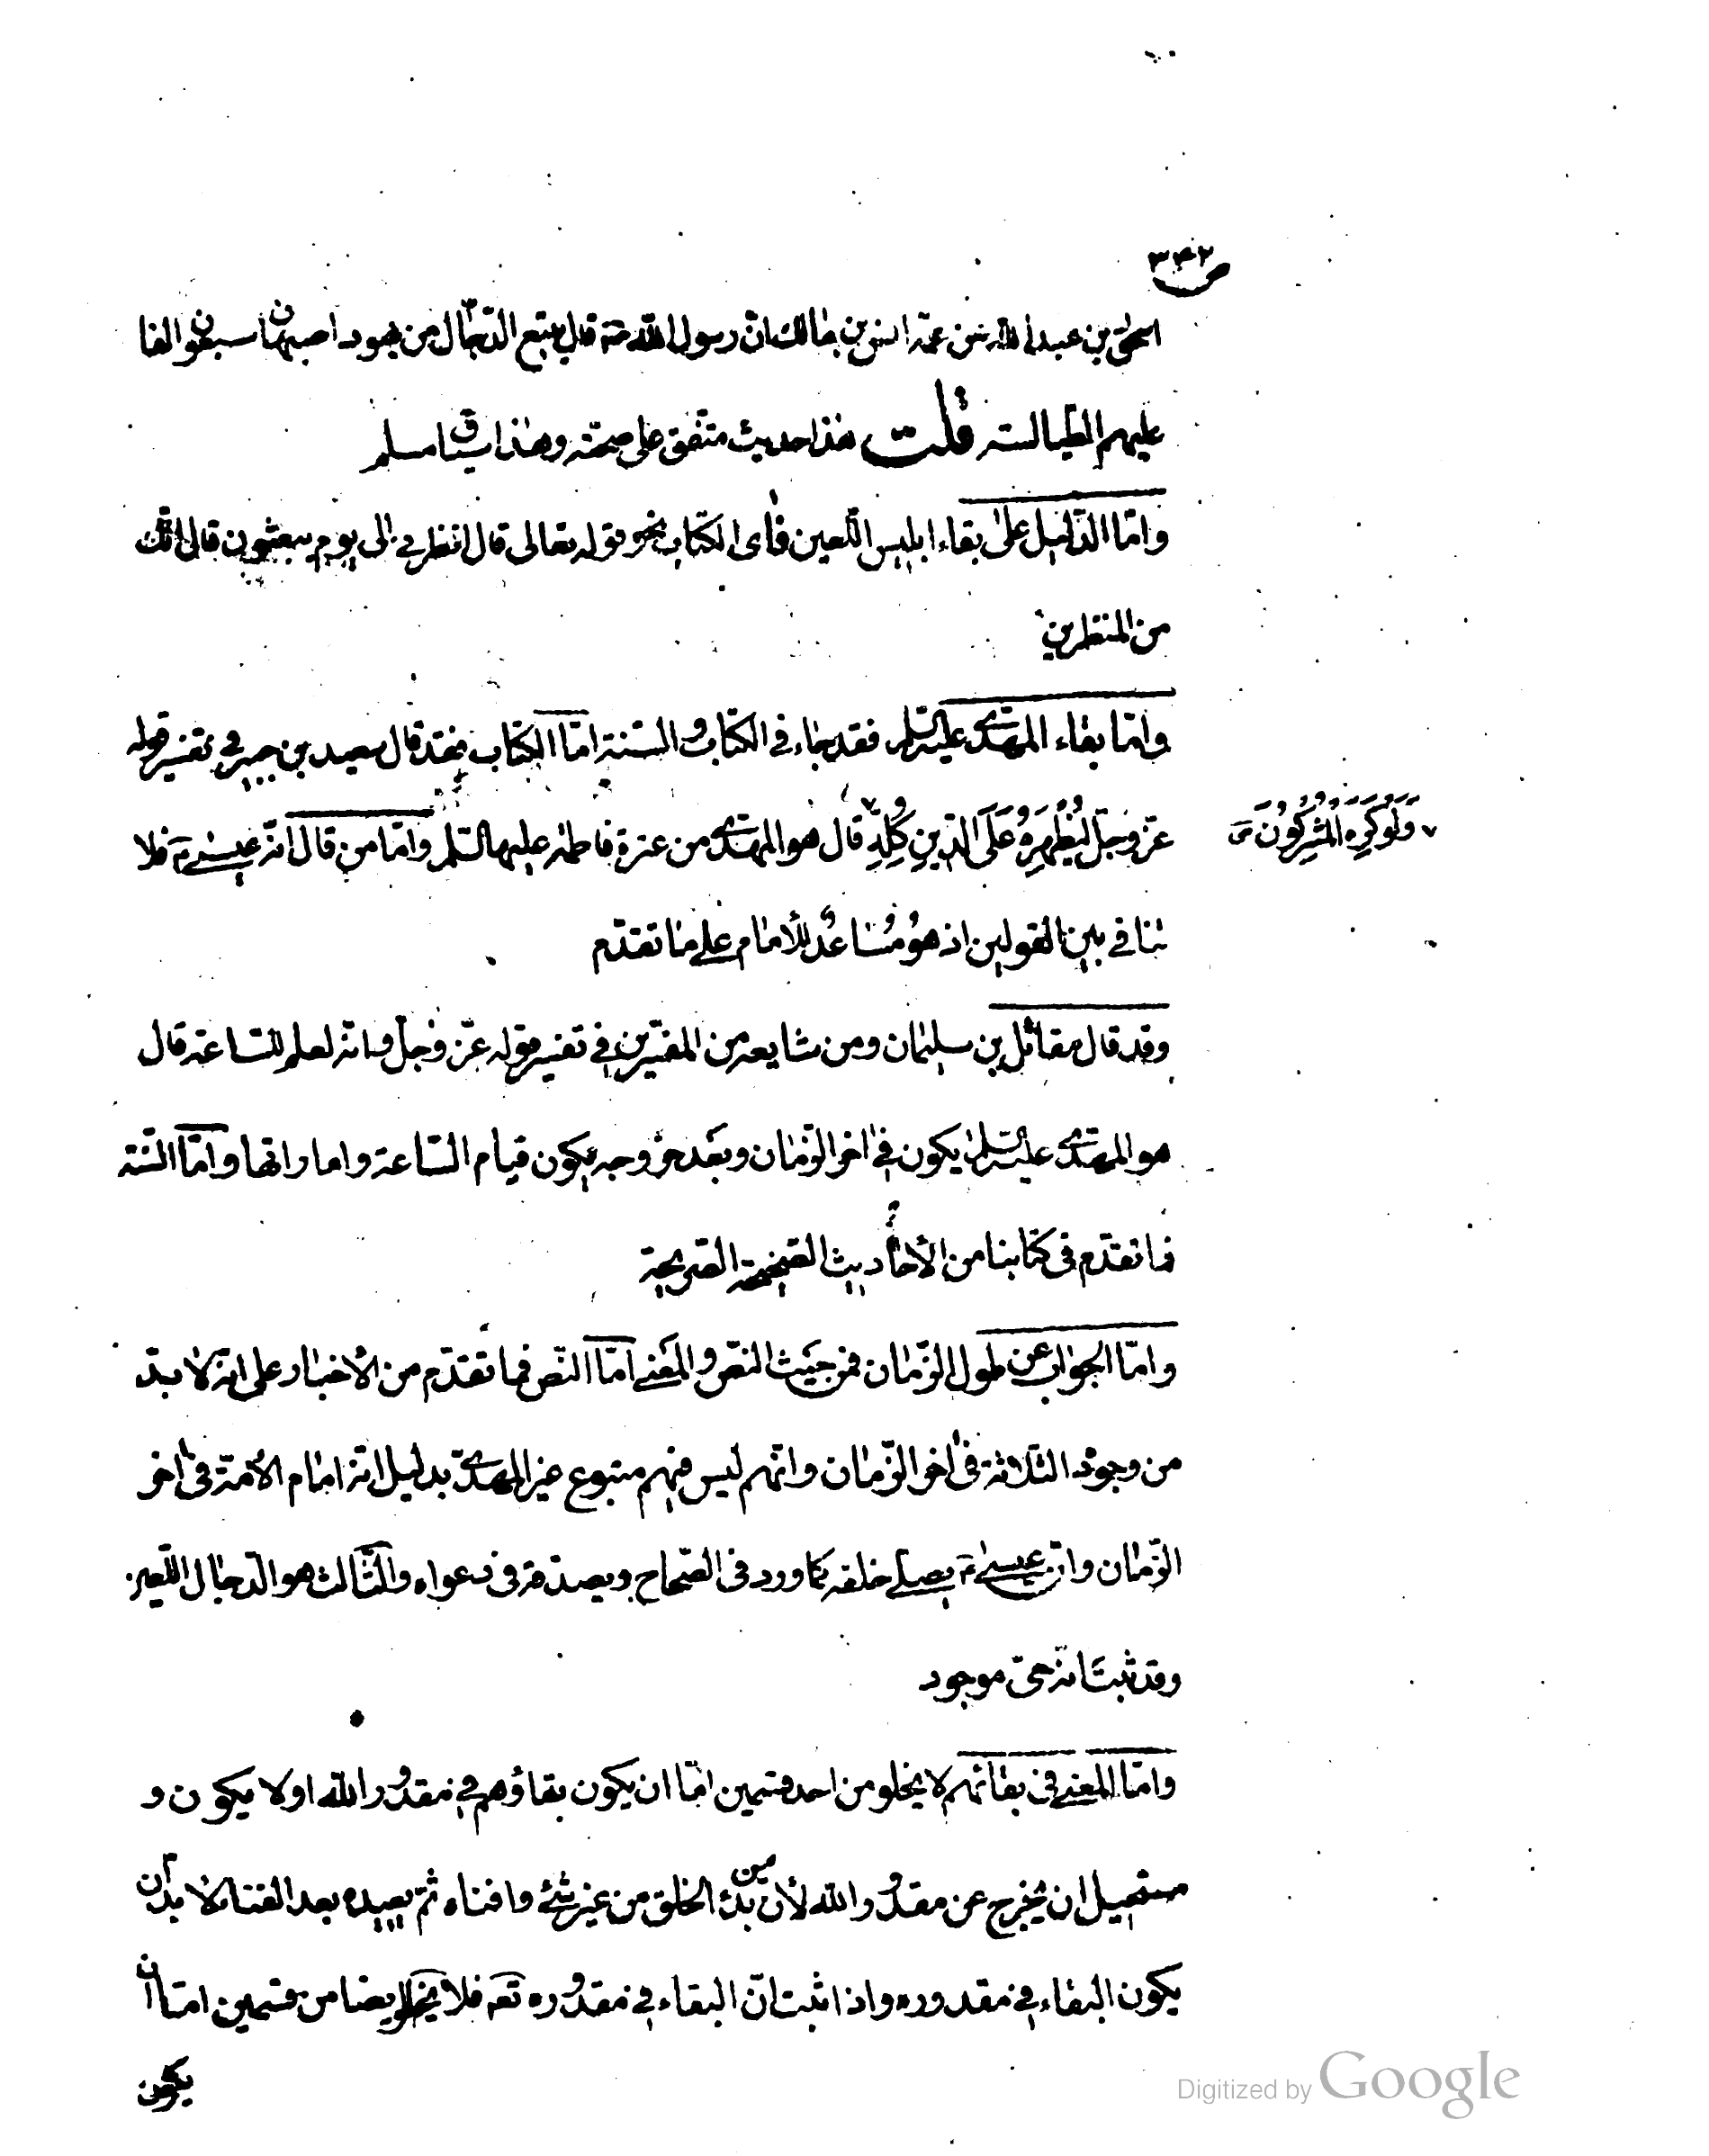 ٣٤٢
اسحق بن عبدالله عن عمه انس بن مالك ان رسول الله قال يتبع الدجال من يهود اصبهان سبعون الفا
عليهم الطيالسة قلت هذا حديث متفق على صحته وهذا سياق مسلم
وامّا الدّليل على بقاء ابليس اللّعين فاى الكتاب نحو قوله تعالى قال انظرنى الى يوم يبعثون قال انّك
من المنظرين
وامّا بقاء المهدىّ عليه السّلم فقد جاء في الكتاب والسّنة امّا الكتاب فقد قال سعيد بن جبير في تفسير قوله
عزّ وجلّ لِيُظْهِرَهُ عَلَى الدِّينِ كُلِّهِ قال هو المهدىّ من عترة فاطمة عليها السّلم وامّا من قال انّه عيسىٰ ع فلا
وَلَوْ كَرِهَ الْمُشْرِكُونَ
تنافي بين القولين اذ هو مُسَاعُدٌ للأمام على ما تقدّم
وقد قال مقاتل بن سليمان ومن شايعه من المفسّرين في تفسير قوله عزّ وجلّ وانّه لعلم للسّاعة قال
هو المهدىّ عليه السّلم يكون في اخر الزّمان وبعد خروجه يكون قيام السّاعة واماراتها وامّا السّنة
فما تقدّم فى كتابنا من الأحاديث الصّحيحة الصّريحة
وامّا الجواب عن طول الزّمان فمن حيث النصّ والمعنى امّا النّص فما تقدّم من الأخبار على انّه لا بدّ
من وجود الثّلاثة فى اخر الزّمان وانّهم ليس فيهم متبوع غير المهدىّ بدليل انّه امام الأمّة فى اخر
الزّمان وانّ عيسىٰ ع يصلى خلفه كما ورد فى الصّحاح ويصدّقه فى دعواه والثّالث هو الدّجال اللّعين
وقد ثبت انّه حىّ موجود
وامّا المعنى فى بقائهم لا يخلو من احد قسمين امّا ان يكون بقاؤهم في مقدور الله او لا يكون و
مستحيل ان يخرج عن مقدور الله لأن من بدء الخلق من غير شئ وافناه ثمّ يعيده بعد الفناء لا بدّ ان
يكون البقاء في مقدوره واذا ثبت انّ البقاء في مقدوره تعه فلا يخلو ايضا من قسمين امّا ان
يكون
Digitized by Google